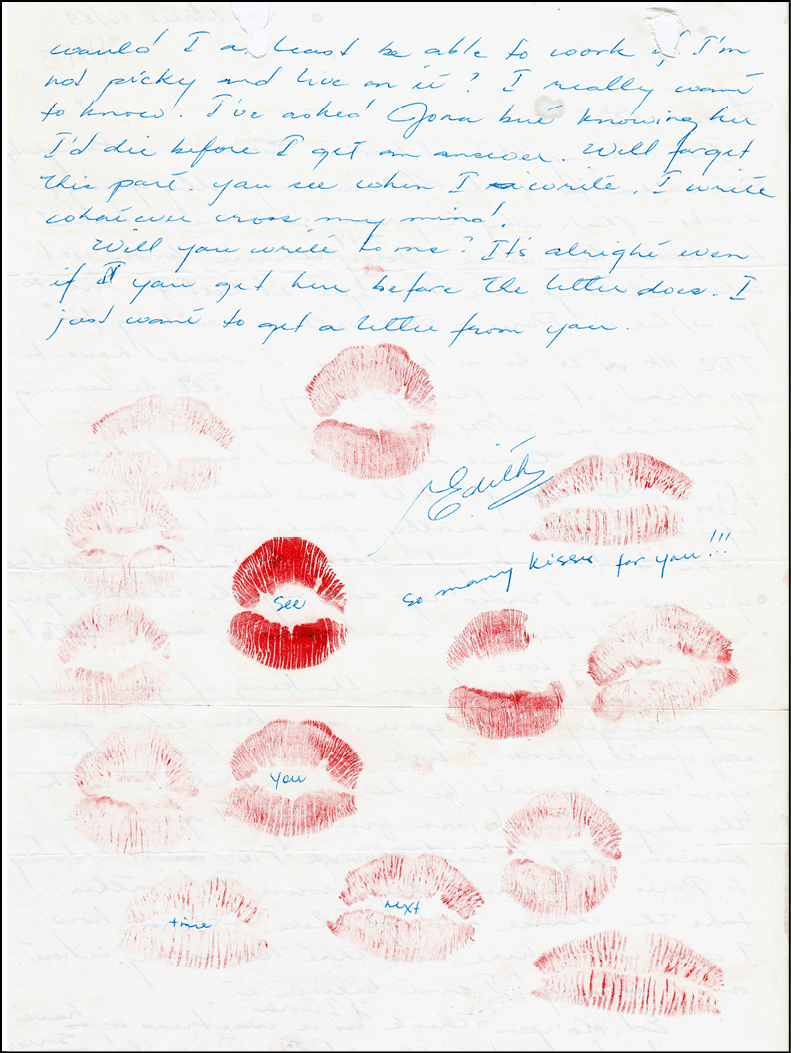 would I at least be able to work if I'm
not picky and live on it? I really want
to know. I've asked Jona but knowing her
I'd die before I get an answer. Well forget
this part. you see when I write, I write
whatever cross my mind.
Will you write to me? It's alright even
if you get here before the letter does. I
just want to get a letter from you.
Edith
so many kisses for you!!!
see
you
next
time